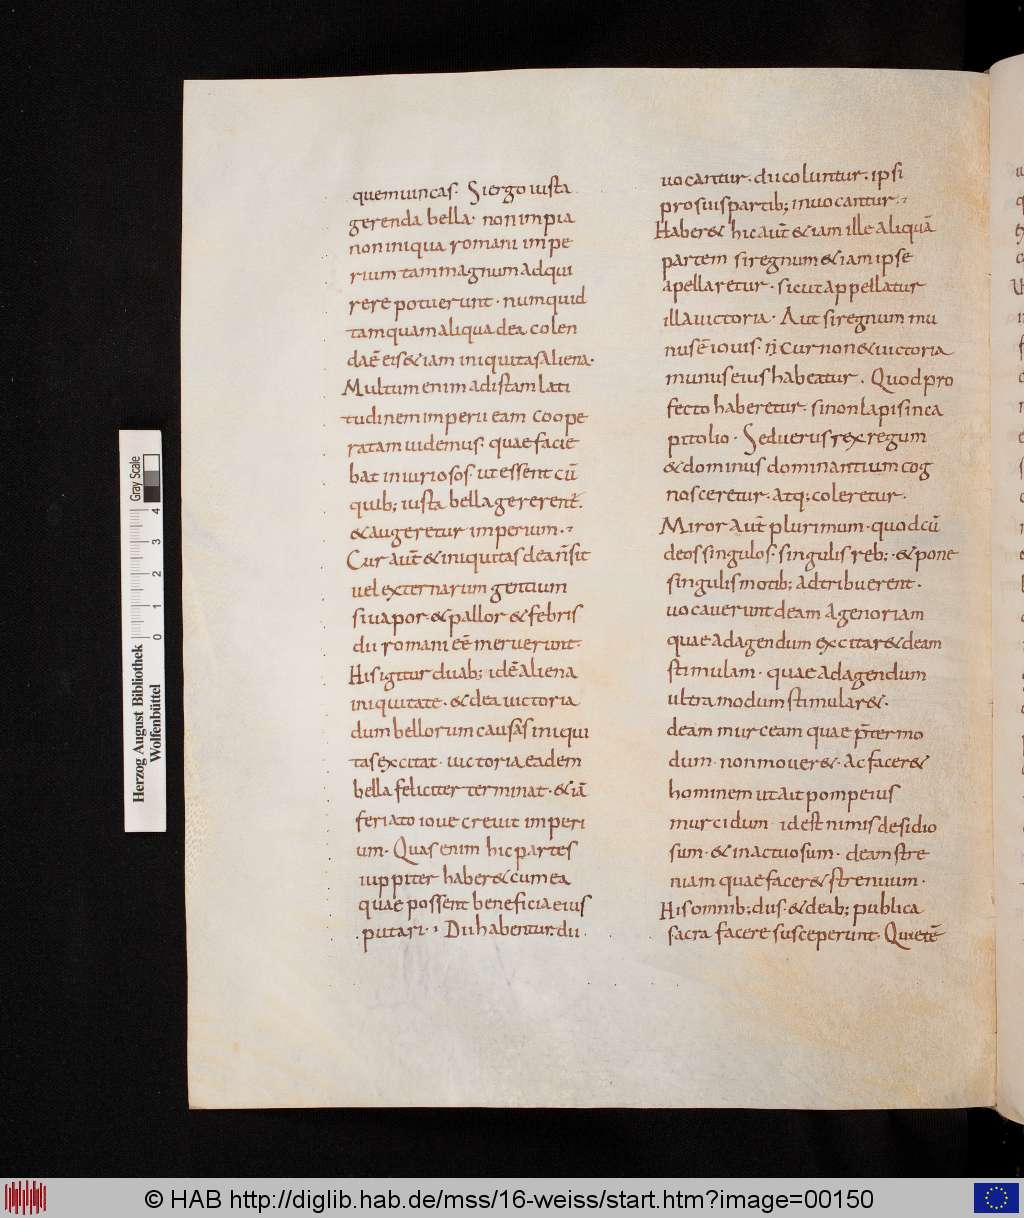 quemuincas. Siergo iusta
gerenda bella. non impia
non iniqua romani impe
rium tam magnum adqui
rere potuerunt. numquid
tamquam aliqua dea colen
daē eis &iam iniquitas aliena.
Multum enim ad istam lati
tudinem imperii eam coope
ratam uidemus. quae facie
bat iniuriosos. ut essent cū
quib; iusta bella gererent.
& augeretur imperium.
Cur aūt & iniquitas dea n̄ sit
uel externarum gentium
si uapor & pallor & febris
dii romani eē meruerunt.
His igitur duab; idē aliena
iniquitate. & dea uictoria
dum bellorum causas iniqui
tas excitat. uictoria eadem
bella feliciter terminat. & iā
feriato ioue creuit imperi
um. Quas enim hic partes
iuppiter haber& cum ea
quae possent beneficia eius
putari. Dii habentur. dii
uocantur. dii coluntur. ipsi
pro suis partib; inuocantur.
Haber& hic aūt &iam ille aliquā
partem si regnum &iam ipse
apellaretur. sicut appellatur
illa uictoria. Aut si regnum mu
nus ē iouis. n̄ cur non & uictoria
munus eius habeatur. Quod pro
fecto haberetur. si non lapis in ca
pitolio. Sed uerus rex regum
& dominus dominantium cog
nosceretur. atq; coleretur.
Miror aūt plurimum. quod cū
deos singulos. singulis reb; & pone
singulis motib; adtribuerent.
uocauerunt deam agenoriam
quae ad agendum excitar& deam
stimulam. quae ad agendum
ultra modum stimular&.
deam murceam quae p̄ter mo
dum. non mouer&. Ac facer&
hominem ut ait pompeius
murcidum id est nimis desidio
sum. & inactuosum. deam stre
niam quae facer& strenuum.
His omnib; diis. & deab; publica
sacra facere susceperunt. Quietē
Gray Scale
0 1 2 3 4
Herzog August Bibliothek
Wolfenbüttel
© HAB http://diglib.hab.de/mss/16-weiss/start.htm?image=00150